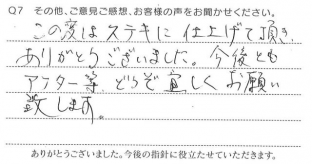 Q7 その他、ご意見ご感想、お客様の声をお聞かせください。
この度はステキに仕上げて頂き
ありがとうございました。今後とも
アフター等 どうぞ宜しくお願い
致します。
ありがとうございました。今後の指針に役立たせていただきます。